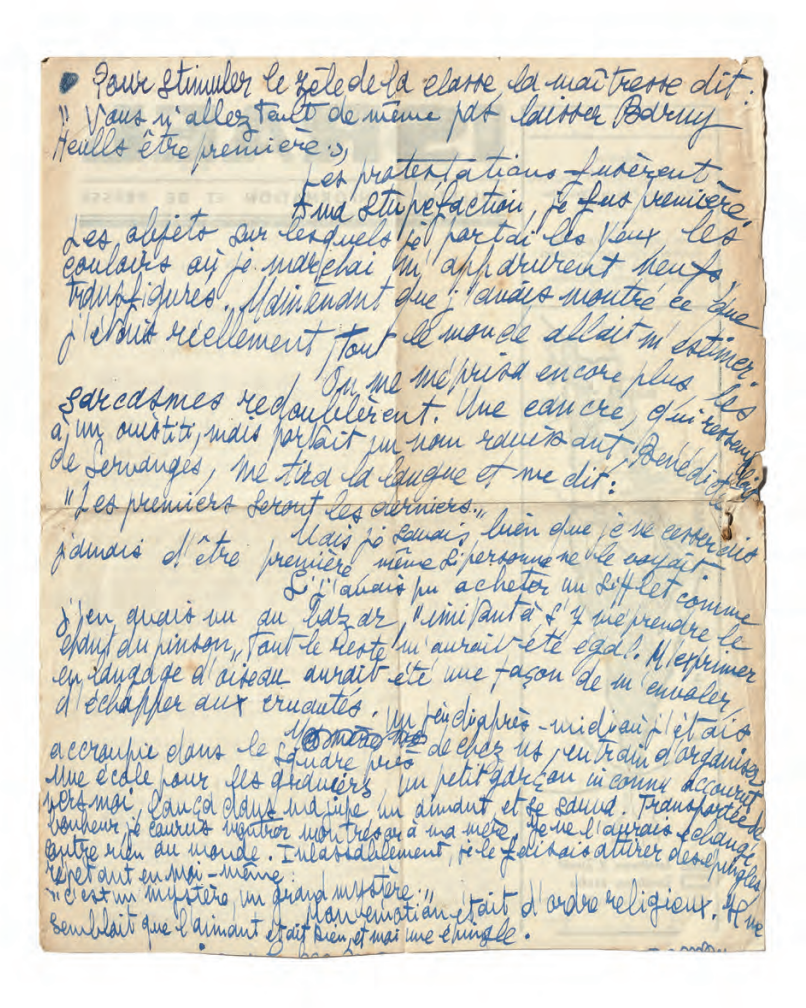 Pour stimuler le zèle de la classe, la maîtresse dit :
"Vous n'allez tout de même pas laisser Barny
Heulls être première."
Les protestations fusèrent.
A ma stupéfaction, je fus première.
Les objets sur lesquels je portai les yeux, les
couloirs où je marchai m'apparurent neufs,
transfigurés. Maintenant que j'avais montré ce que
j'étais réellement, tout le monde allait m'estimer.
On me méprisa encore plus, les
sarcasmes redoublèrent. Une cancre, qui ressemblait
à un ouistiti, mais portait un nom ravissant, Bénédicte
de Servanges, me tira la langue et me dit :
"Les premiers seront les derniers."
Mais je savais bien que je ne cesserais
jamais d'être première même si personne ne le voyait.
Si j'avais pu acheter un sifflet comme
j'en avais vu au bazar, "imitant à s'y méprendre le
chant du pinson", tout le reste m'aurait été égal. M'exprimer
en langage d'oiseau aurait été une façon de m'envoler,
d'échapper aux cruautés.
Un jeudi après-midi où j'étais
accroupie dans le square près de chez us, en train d'organiser
une école pour les graviers, un petit garçon inconnu accourut
vers moi, lança dans ma jupe un aimant et se sauva. Transportée de
bonheur, je courus montrer mon trésor à ma mère. Je ne l'aurais échangé
contre rien au monde. Inlassablement, je le faisais attirer des épingles,
répétant en moi-même :
"C'est un mystère, un grand mystère."
Mon émotion était d'ordre religieux. Il me
semblait que l'aimant était Dieu, et moi une épingle.